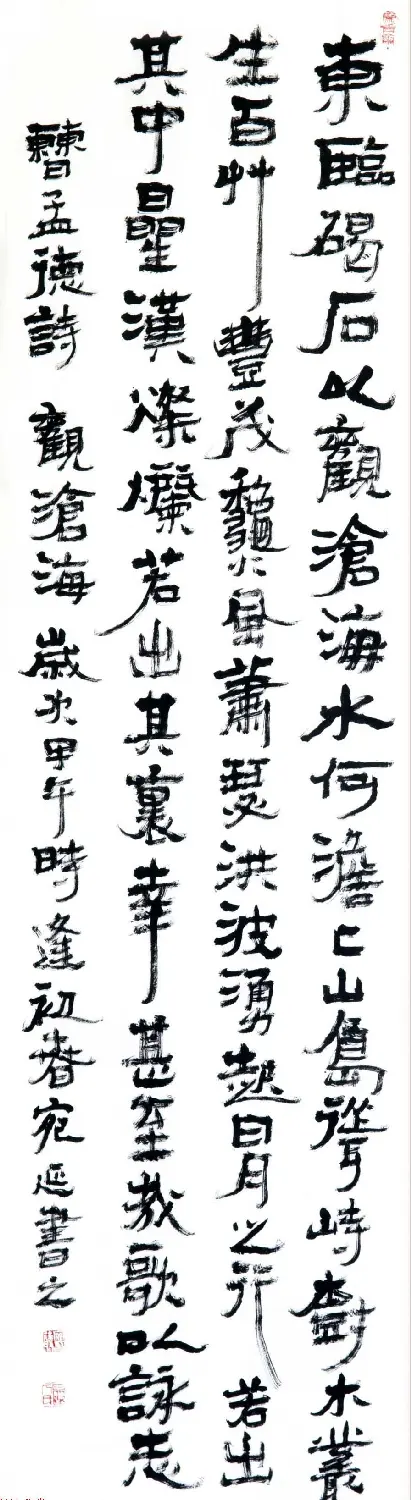 東臨碣石以觀滄海水何澹〻山島聳峙樹木叢
生百艸豐茂龝風蕭瑟洪波湧起日月之行若出
其中星漢燦爛若出其裏幸甚至哉歌以詠志
曹孟德詩觀滄海歲次甲午時逢初春宛延書之